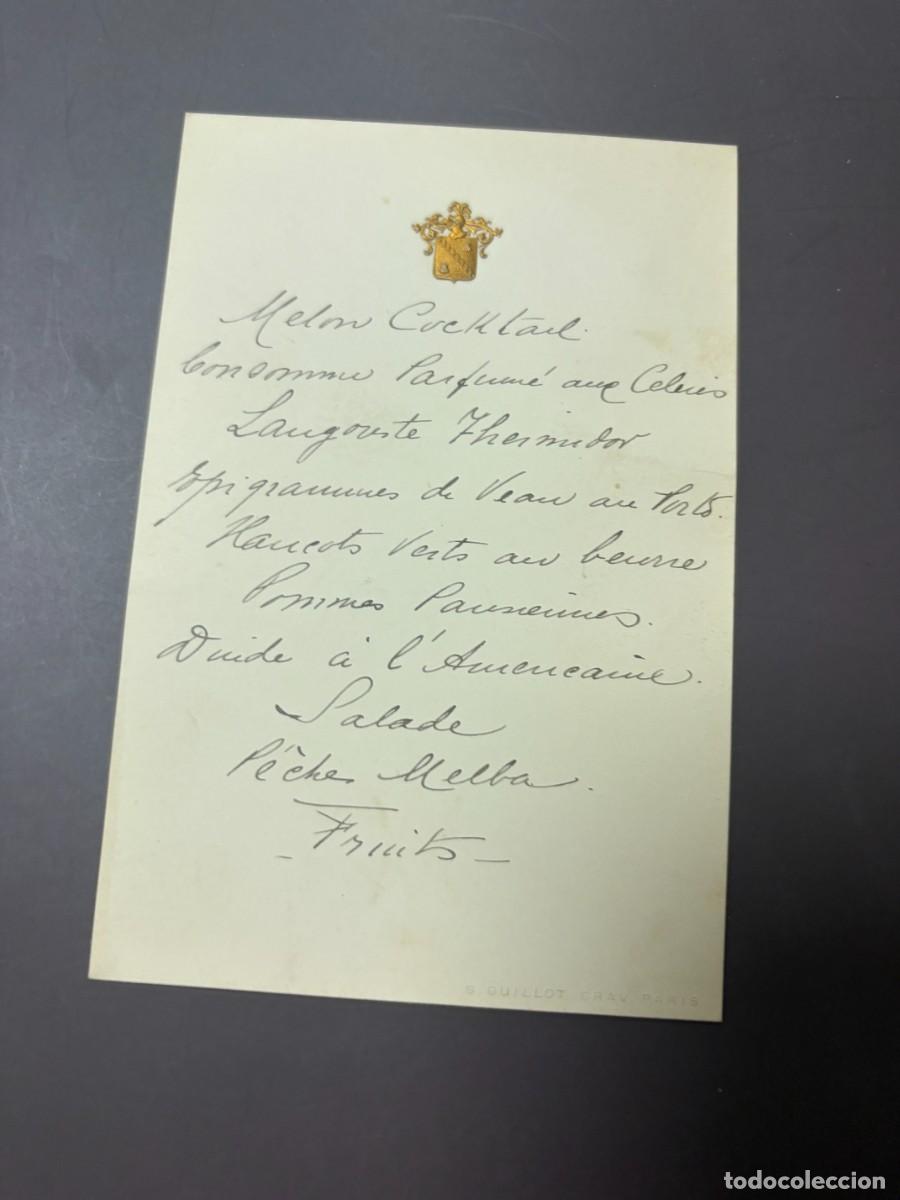 Melon Cocktail.
Consomme Parfumé aux Celeris
Langouste Thermidor
Epigrammes de Veau au Porto.
Haricots Verts au beurre
Pommes Parisiennes.
Dinde à l'Americaine.
Salade
Pêches Melba.
- Fruits -
S. GUILLOT GRAV. PARIS
todocoleccion